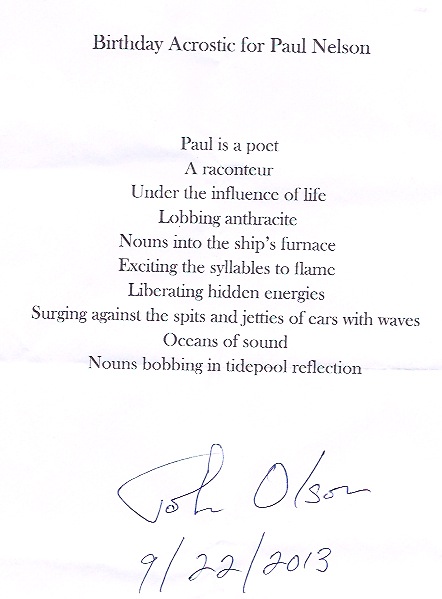 Birthday Acrostic for Paul Nelson
Paul is a poet
A raconteur
Under the influence of life
Lobbing anthracite
Nouns into the ship's furnace
Exciting the syllables to flame
Liberating hidden energies
Surging against the spits and jetties of ears with waves
Oceans of sound
Nouns bobbing in tidepool reflection
John Olson
9/22/2013